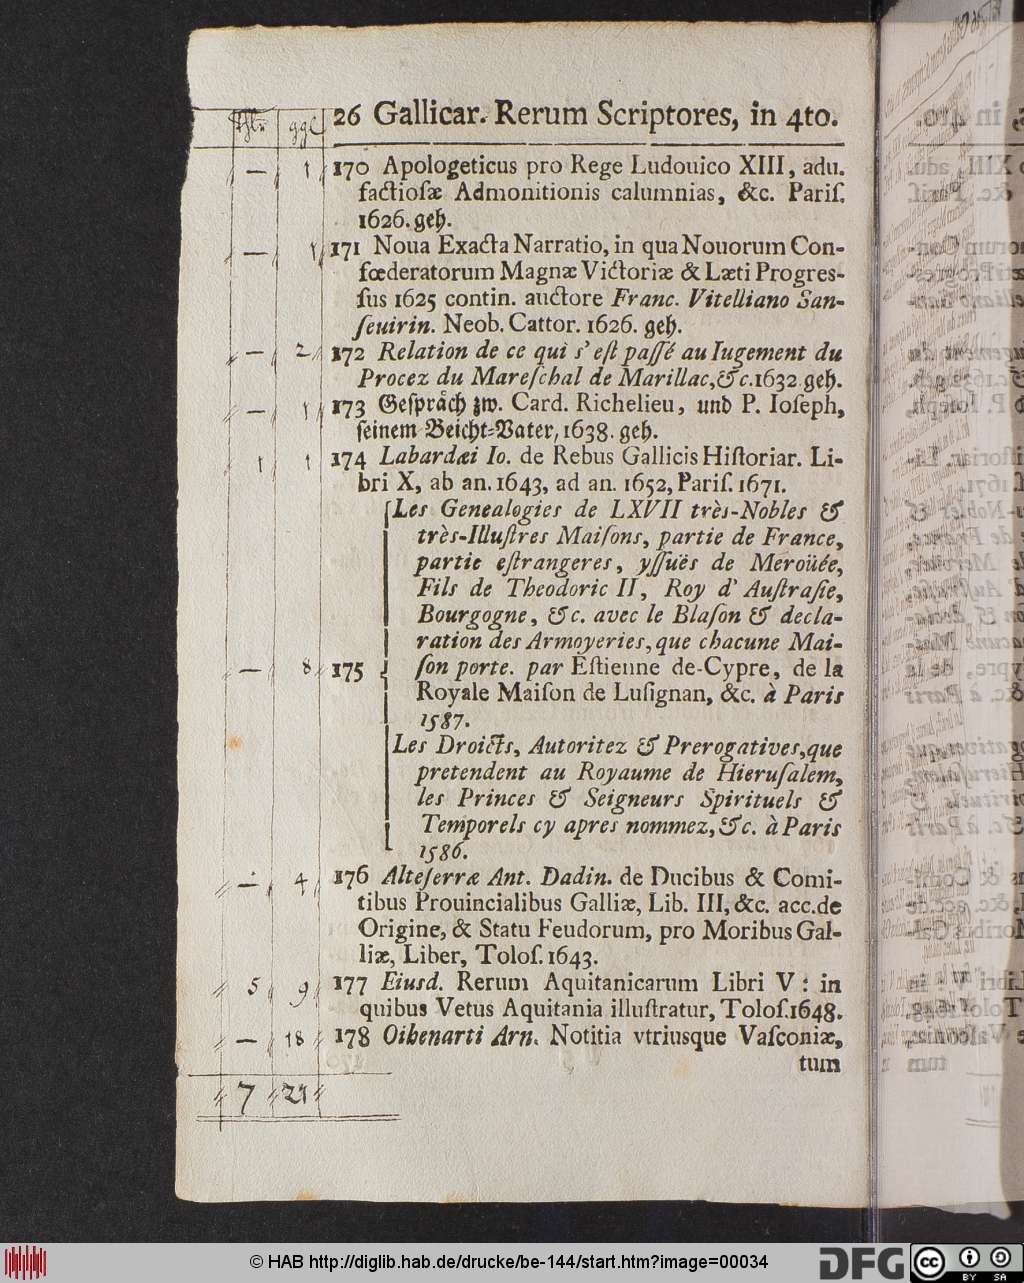 26 Gallicar. Rerum Scriptores, in 4to.
— 1 170 Apologeticus pro Rege Ludouico XIII, adu.
factioſæ Admonitionis calumnias, &c. Pariſ.
1626. geh.
— 1 171 Noua Exacta Narratio, in qua Nouorum Con-
fœderatorum Magnæ Victoriæ & Læti Progreſ-
ſus 1625 contin. auctore Franc. Vitelliano San-
ſeuirin. Neob. Cattor. 1626. geh.
— 2 172 Relation de ce qui s' eſt paſſé au Iugement du
Procez du Mareſchal de Marillac, &c. 1632 geh.
— 1 173 Geſpräch zw. Card. Richelieu, und P. Ioſeph,
ſeinem Beicht-Vater, 1638. geh.
1 1 174 Labardæi Io. de Rebus Gallicis Hiſtoriar. Li-
bri X, ab an. 1643, ad an. 1652, Pariſ. 1671.
Les Genealogies de LXVII très-Nobles &
très-Illuſtres Maiſons, partie de France,
partie eſtrangeres, yſſuës de Meroüée,
Fils de Theodoric II, Roy d' Auſtraſie,
Bourgogne, &c. avec le Blaſon & decla-
ration des Armoyeries, que chacune Mai-
— 8 175 ſon porte. par Eſtienne de-Cypre, de la
Royale Maiſon de Luſignan, &c. à Paris
1587.
Les Droicts, Autoritez & Prerogatives, que
pretendent au Royaume de Hieruſalem,
les Princes & Seigneurs Spirituels &
Temporels cy apres nommez, &c. à Paris
1586.
— 4 176 Alteſerræ Ant. Dadin. de Ducibus & Comi-
tibus Prouincialibus Galliæ, Lib. III, &c. acc. de
Origine, & Statu Feudorum, pro Moribus Gal-
liæ, Liber, Toloſ. 1643.
5 9 177 Eiusd. Rerum Aquitanicarum Libri V : in
quibus Vetus Aquitania illuſtratur, Toloſ. 1648.
— 18 178 Oihenarti Arn. Notitia vtriusque Vaſconiæ,
tum
7 21
© HAB http://diglib.hab.de/drucke/be-144/start.htm?image=00034
DFG
cc BY SA